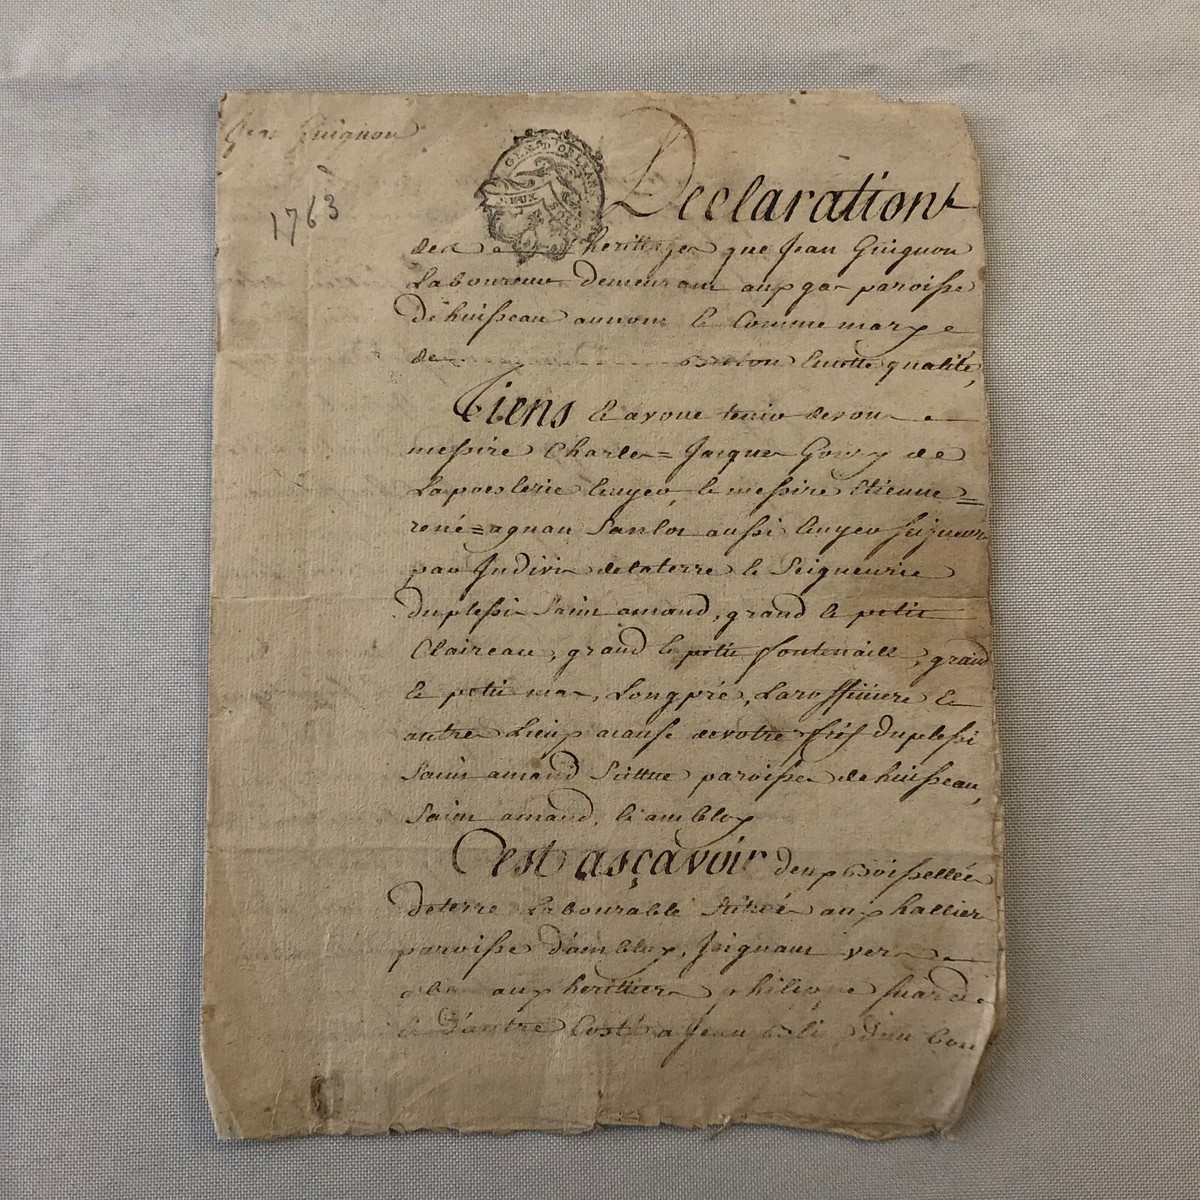 Jean Guignon
1763
GEN. D'ORLEANS
DEUX
Declaration
des heritages que Jean Guignon
Laboureur demeurant aux paroisse
d'huisseau au nom & Comme marye
de Breton & notte qualité,
Tiens & avoue tenir de vous
messire Charles= Jacques Goury de
Lapoeslerie Ecuyer, & messire Etienne=
rené=agnan Sanlot aussi Ecuyer Seigneurs
par Indivis de la terre & Seigneurie
du plessi Saint amand, grand & petit
Claireau, grand & petit fontenaill, grand
& petit mas, Longpré, &
autres Lieux a cause de votre fief du plessi
Saint amand Scittué paroisses de huisseau,
Saint amand, & ambloy
C'est asçavoir deux Boissellées
de terre Labourable Scituées aux hallier
paroisse d'ambloy, Joignant vers
aux herittiers philippe
& d'autre Costé a Jean d'un bout